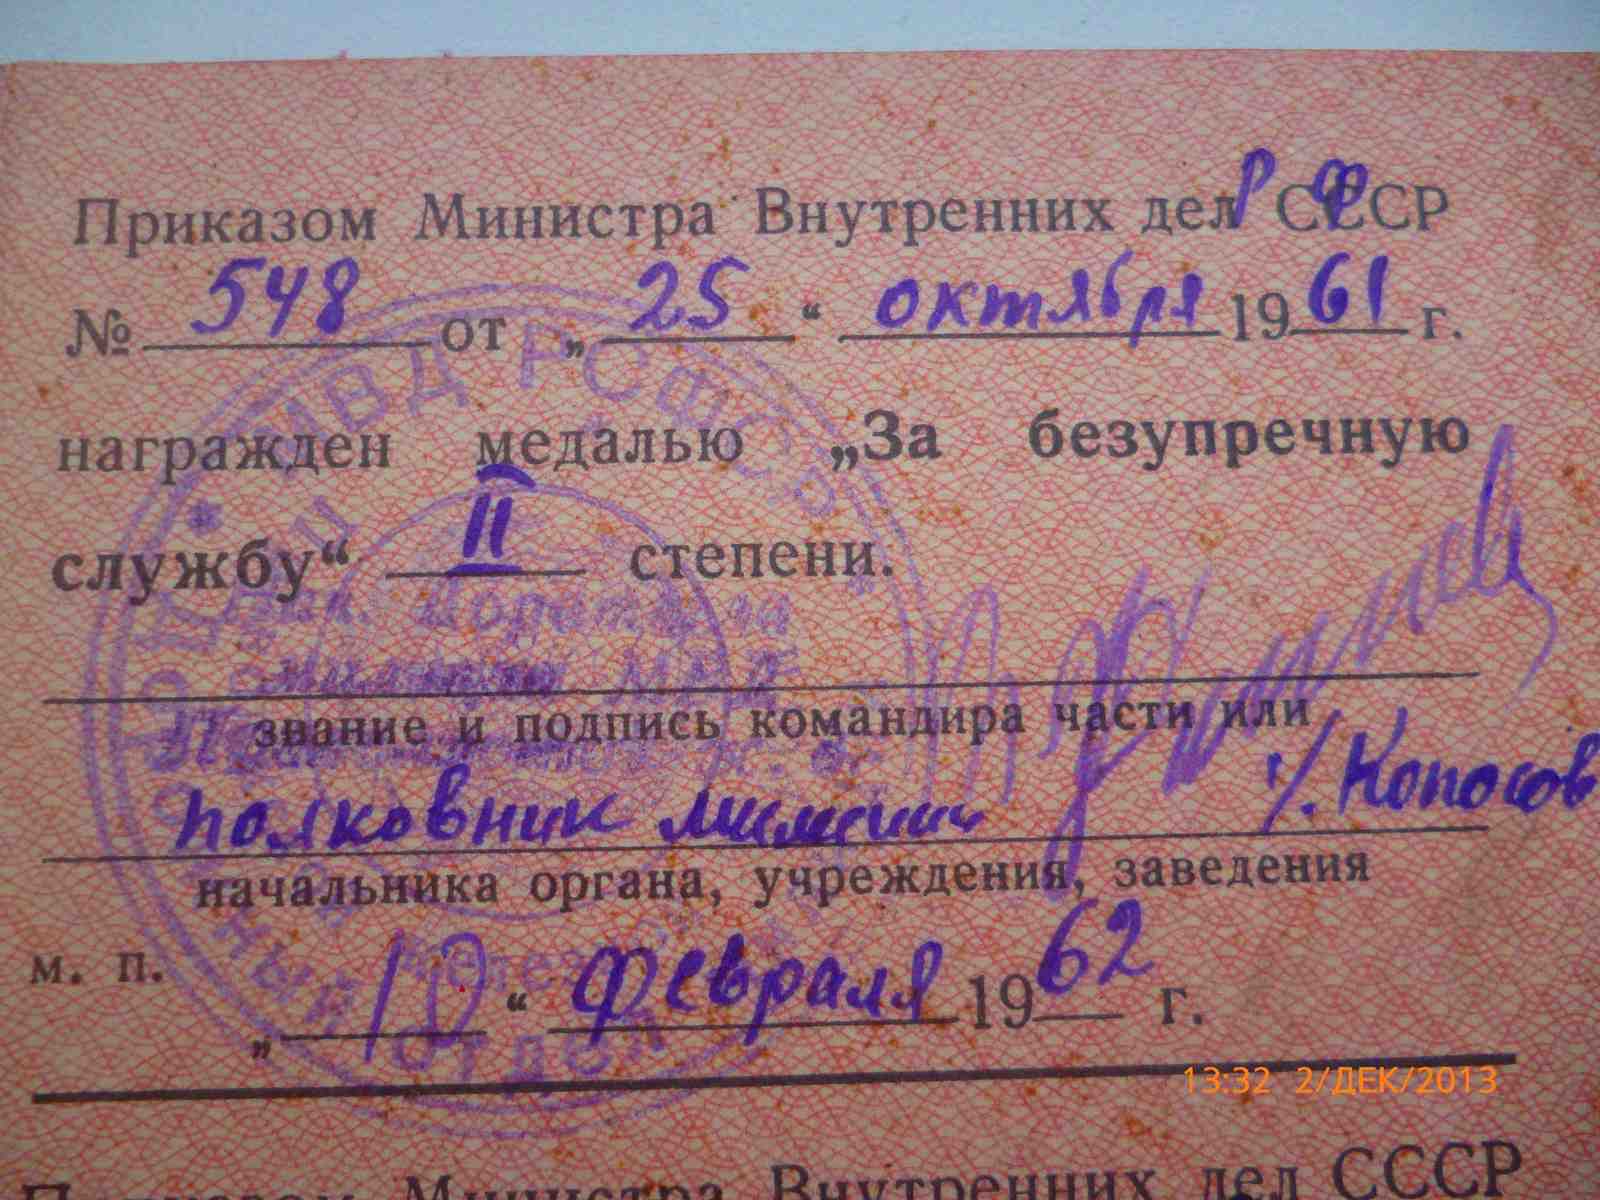 Приказом Министра Внутренних дел РСФСР
№ 548 от „ 25 “ октября 1961 г.
награжден медалью „За безупречную
службу“ II степени.
звание и подпись командира части или
полковник милиции /. Копосов
начальника органа, учреждения, заведения
м. п.
„ 10 “ февраля 1962 г.
МВД РСФСР
милиции
ОТДЕЛ
13:32 2/ДЕК/2013
Министра Внутренних дел СССР